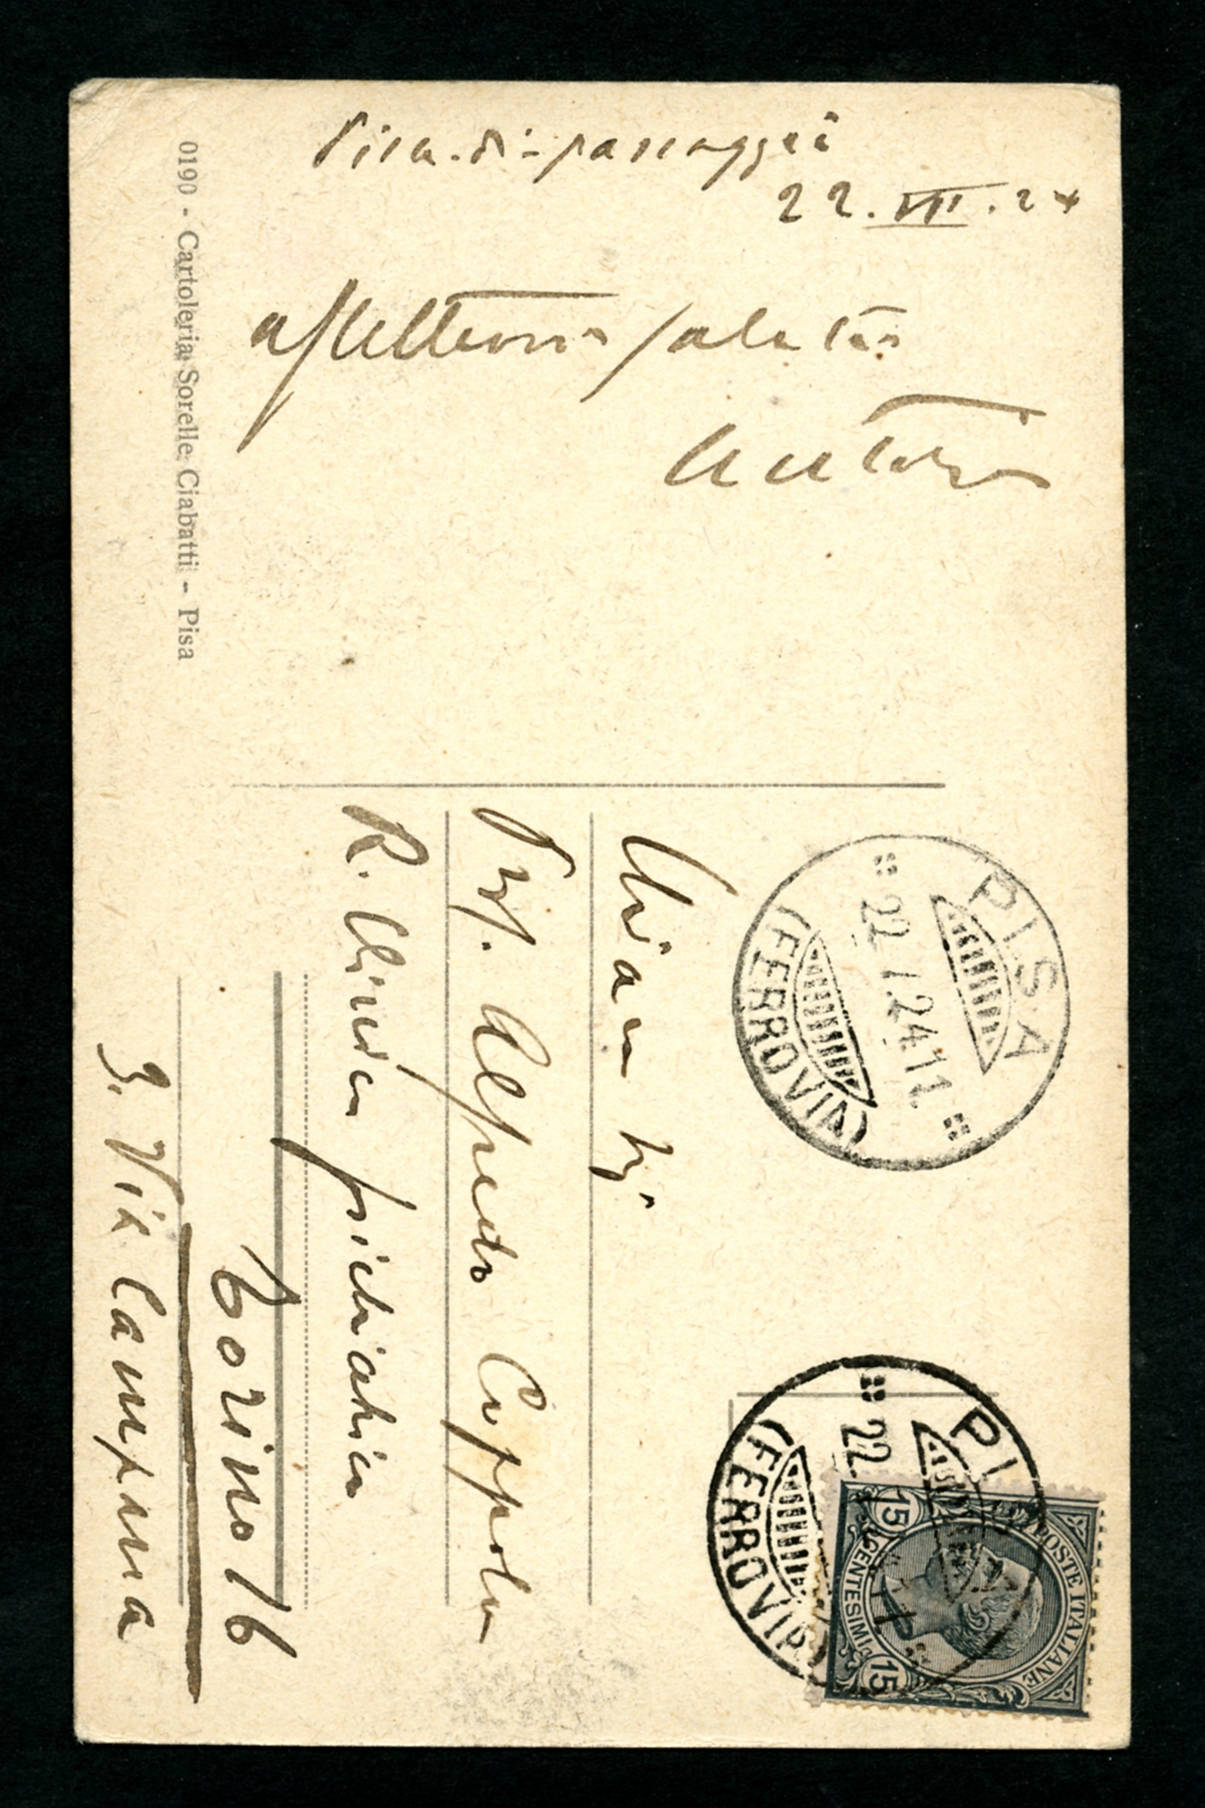 Pisa - di - passaggio
22. VII. 24
affettuosi saluti
Antonio
0190 - Cartoleria Sorelle Ciabatti - Pisa
PISA
22.7.24.11
(FERROVIA)
PISA
22
(FERROVIA)
POSTE ITALIANE
15 CENTESIMI 15
Chiar.
Prof. Alfredo Coppola
R. Clinica psichiatrica
Torino 16
3. Via Campana